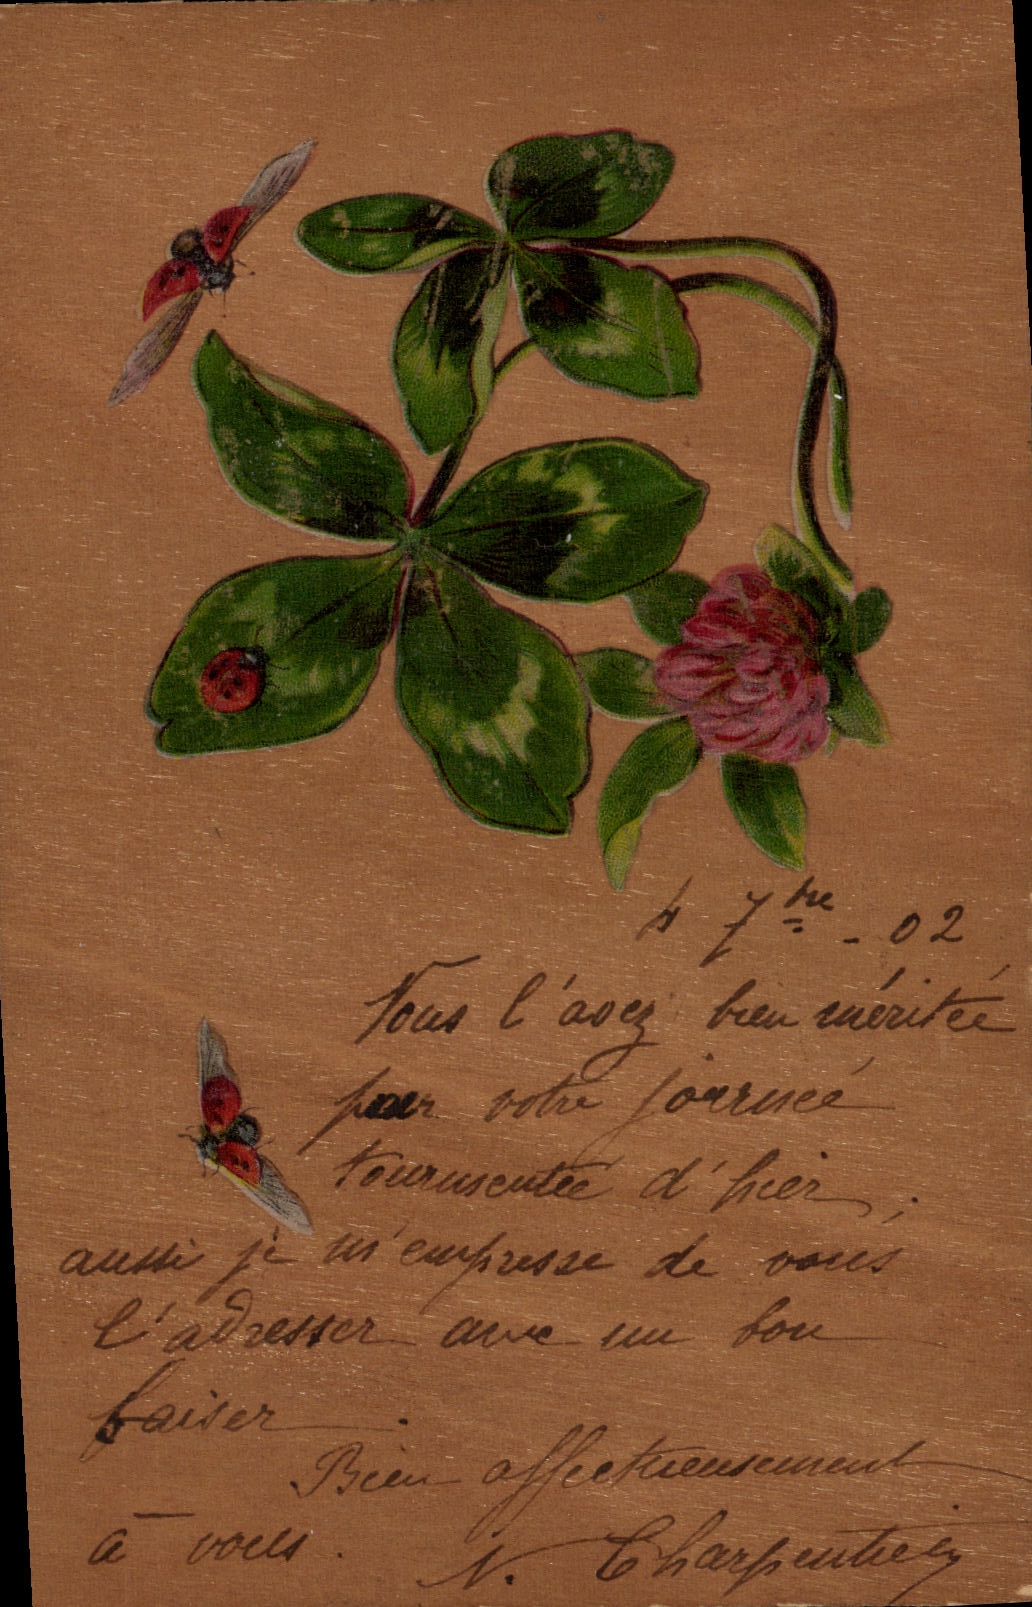 4 7bre - 02
Vous l'avez bien méritée
pour votre journée
tourmentée d'hier ;
aussi je m'empresse de vous
l'adresser avec un bon
baiser.
Bien affectueusement
à vous.
N. Charpentier